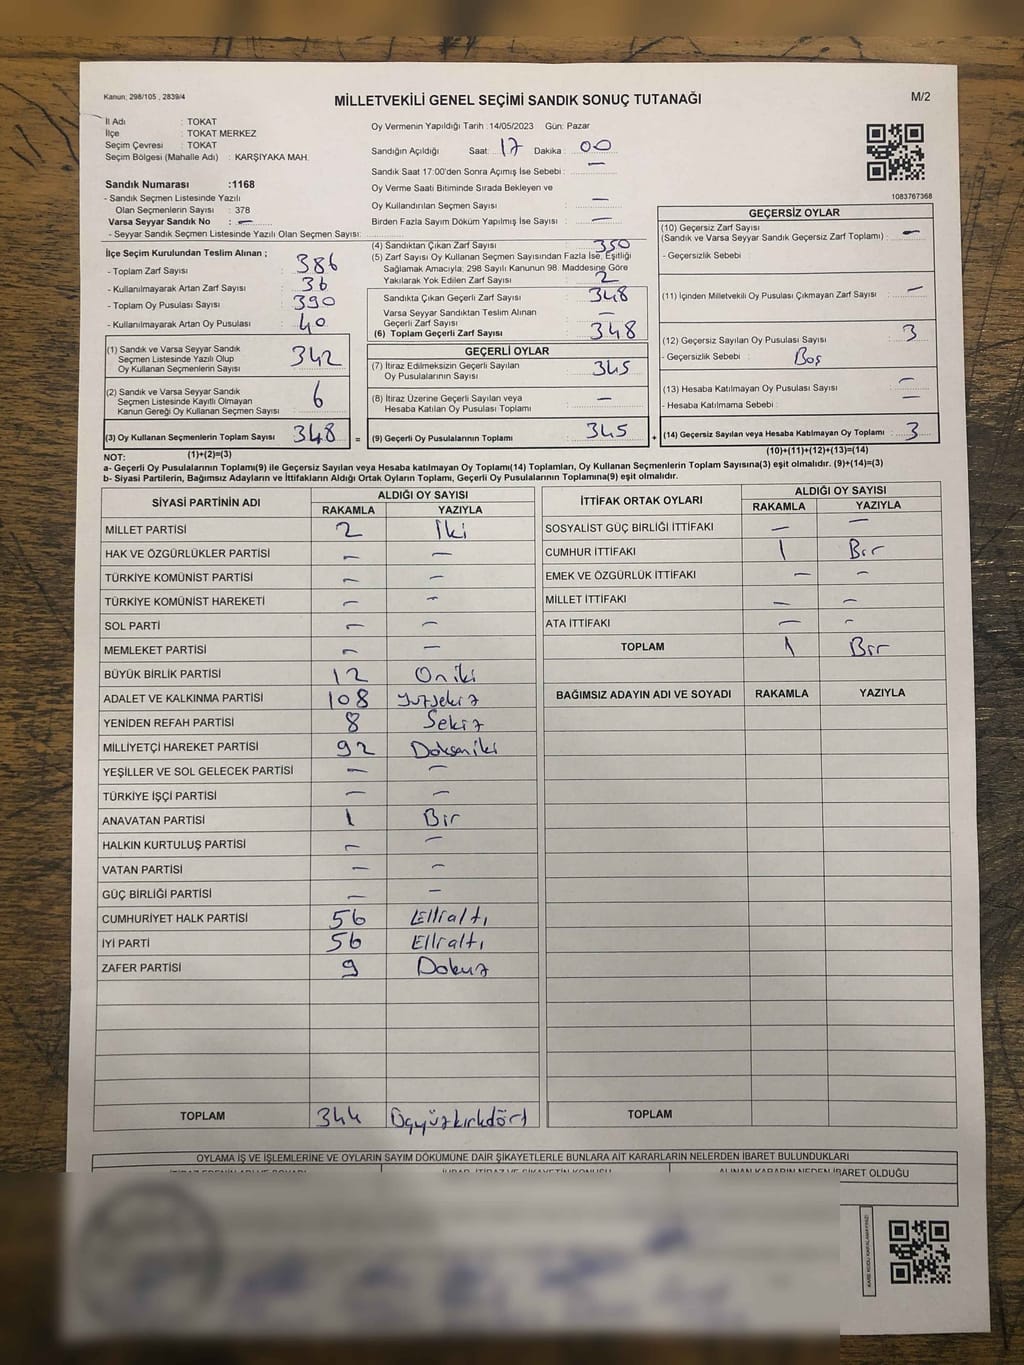 Kanun; 298/105 , 2839/4
MİLLETVEKİLİ GENEL SEÇİMİ SANDIK SONUÇ TUTANAĞI
M/2
İl Adı : TOKAT
İlçe : TOKAT MERKEZ
Seçim Çevresi : TOKAT
Seçim Bölgesi (Mahalle Adı) : KARŞIYAKA MAH.
Oy Vermenin Yapıldığı Tarih :14/05/2023 Gün: Pazar
Sandığın Açıldığı Saat: 17 Dakika : 00
Sandık Saat 17:00'den Sonra Açımış İse Sebebi : —
Oy Verme Saati Bitiminde Sırada Bekleyen ve
Oy Kullandırılan Seçmen Sayısı : —
Birden Fazla Sayım Döküm Yapılmış İse Sayısı : —
1083767368
Sandık Numarası :1168
- Sandık Seçmen Listesinde Yazılı
Olan Seçmenlerin Sayısı : 378
Varsa Seyyar Sandık No : —
- Seyyar Sandık Seçmen Listesinde Yazılı Olan Seçmen Sayısı:
İlçe Seçim Kurulundan Teslim Alınan ;
- Toplam Zarf Sayısı : 386
- Kullanılmayarak Artan Zarf Sayısı : 36
- Toplam Oy Pusulası Sayısı : 390
- Kullanılmayarak Artan Oy Pusulası : 40
(1) Sandık ve Varsa Seyyar Sandık
Seçmen Listesinde Yazılı Olup
Oy Kullanan Seçmenlerin Sayısı : 342
(2) Sandık ve Varsa Seyyar Sandık
Seçmen Listesinde Kayıtlı Olmayan
Kanun Gereği Oy Kullanan Seçmen Sayısı : 6
(3) Oy Kullanan Seçmenlerin Toplam Sayısı : 348 =
(1)+(2)=(3)
(4) Sandıktan Çıkan Zarf Sayısı : 350
(5) Zarf Sayısı Oy Kullanan Seçmen Sayısından Fazla İse, Eşitliği
Sağlamak Amacıyla; 298 Sayılı Kanunun 98. Maddesine Göre
Yakılarak Yok Edilen Zarf Sayısı : 2
Sandıkta Çıkan Geçerli Zarf Sayısı : 348
Varsa Seyyar Sandıktan Teslim Alınan
Geçerli Zarf Sayısı : —
(6) Toplam Geçerli Zarf Sayısı : 348
GEÇERLİ OYLAR
(7) İtiraz Edilmeksizin Geçerli Sayılan
Oy Pusulalarının Sayısı : 345
(8) İtiraz Üzerine Geçerli Sayılan veya
Hesaba Katılan Oy Pusulası Toplamı : —
(9) Geçerli Oy Pusulalarının Toplamı : 345 +
GEÇERSİZ OYLAR
(10) Geçersiz Zarf Sayısı
(Sandık ve Varsa Seyyar Sandık Geçersiz Zarf Toplamı) : —
- Geçersizlik Sebebi :
(11) İçinden Milletvekili Oy Pusulası Çıkmayan Zarf Sayısı : —
(12) Geçersiz Sayılan Oy Pusulası Sayısı : 3
- Geçersizlik Sebebi : Boş
(13) Hesaba Katılmayan Oy Pusulası Sayısı : —
- Hesaba Katılmama Sebebi : —
(14) Geçersiz Sayılan veya Hesaba Katılmayan Oy Toplamı : 3
(10)+(11)+(12)+(13)=(14)
NOT:
a- Geçerli Oy Pusulalarının Toplamı(9) ile Geçersiz Sayılan veya Hesaba katılmayan Oy Toplamı(14) Toplamları, Oy Kullanan Seçmenlerin Toplam Sayısına(3) eşit olmalıdır. (9)+(14)=(3)
b- Siyasi Partilerin, Bağımsız Adayların ve İttifakların Aldığı Ortak Oyların Toplamı, Geçerli Oy Pusulalarının Toplamına(9) eşit olmalıdır.
SİYASİ PARTİNİN ADI ALDIĞI OY SAYISI
RAKAMLA YAZIYLA
MİLLET PARTİSİ 2 İki
HAK VE ÖZGÜRLÜKLER PARTİSİ — —
TÜRKİYE KOMÜNİST PARTİSİ — —
TÜRKİYE KOMÜNİST HAREKETİ — —
SOL PARTİ — —
MEMLEKET PARTİSİ — —
BÜYÜK BİRLİK PARTİSİ 12 Oniki
ADALET VE KALKINMA PARTİSİ 108 Yüzsekiz
YENİDEN REFAH PARTİSİ 8 Sekiz
MİLLİYETÇİ HAREKET PARTİSİ 92 Doksaniki
YEŞİLLER VE SOL GELECEK PARTİSİ — —
TÜRKİYE İŞÇİ PARTİSİ — —
ANAVATAN PARTİSİ 1 Bir
HALKIN KURTULUŞ PARTİSİ — —
VATAN PARTİSİ — —
GÜÇ BİRLİĞİ PARTİSİ — —
CUMHURİYET HALK PARTİSİ 56 Ellialtı
İYİ PARTİ 56 Ellialtı
ZAFER PARTİSİ 9 Dokuz
TOPLAM 344 Üçyüzkırkdört
İTTİFAK ORTAK OYLARI ALDIĞI OY SAYISI
RAKAMLA YAZIYLA
SOSYALİST GÜÇ BİRLİĞİ İTTİFAKI — —
CUMHUR İTTİFAKI 1 Bir
EMEK VE ÖZGÜRLÜK İTTİFAKI — —
MİLLET İTTİFAKI — —
ATA İTTİFAKI — —
TOPLAM 1 Bir
BAĞIMSIZ ADAYIN ADI VE SOYADI RAKAMLA YAZIYLA
TOPLAM
OYLAMA İŞ VE İŞLEMLERİNE VE OYLARIN SAYIM DÖKÜMÜNE DAİR ŞİKAYETLERLE BUNLARA AİT KARARLARIN NELERDEN İBARET BULUNDUKLARI
ALINAN KARARIN NEDEN İBARET OLDUĞU